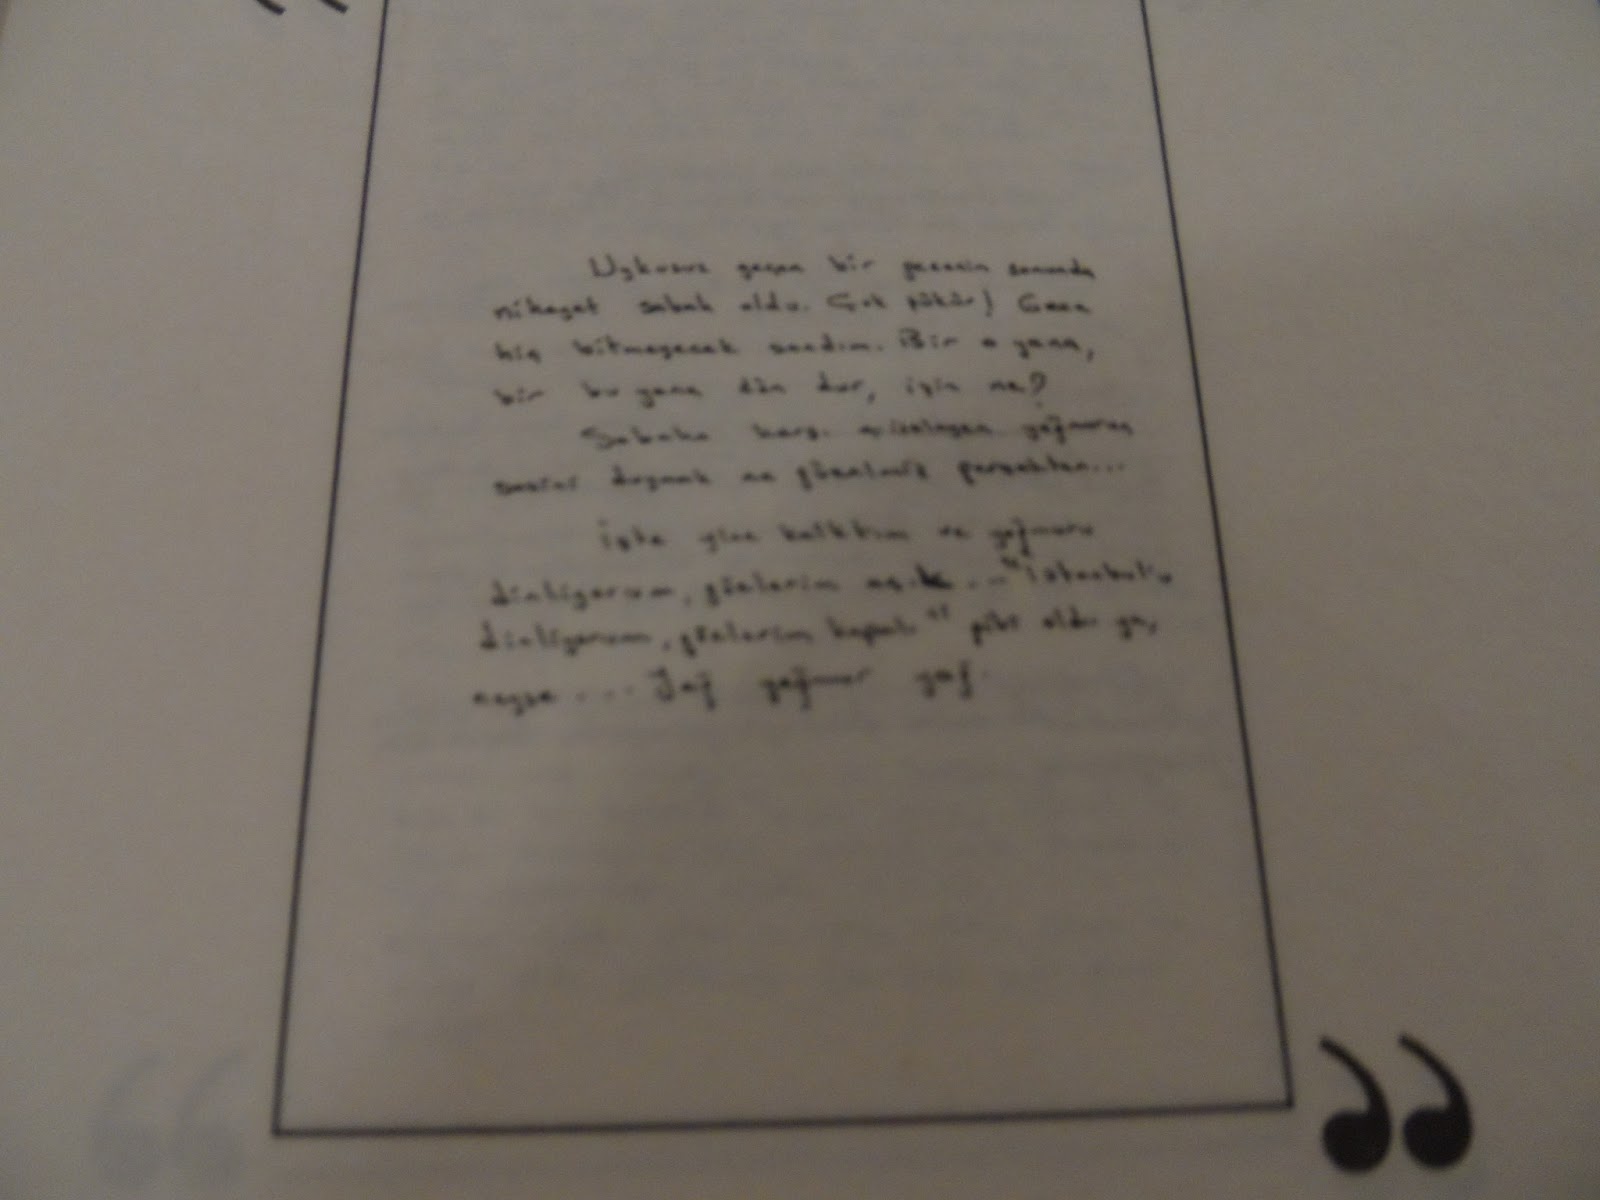 Uykusuz geçen bir gecenin sonunda
nihayet sabah oldu. Çok şükür! Gece
hiç bitmeyecek sandım. Bir o yana,
bir bu yana dön dur, işin ne?
Sabaha karşı çiseleyen yağmurun
sesini duymak ne güzelmiş gerçekten...
İşte yine kalktım ve yağmuru
dinliyorum, gözlerim açık... "İstanbul'u
dinliyorum, gözlerim kapalı" gibi oldu ya,
neyse.... Yağ yağmur yağ.